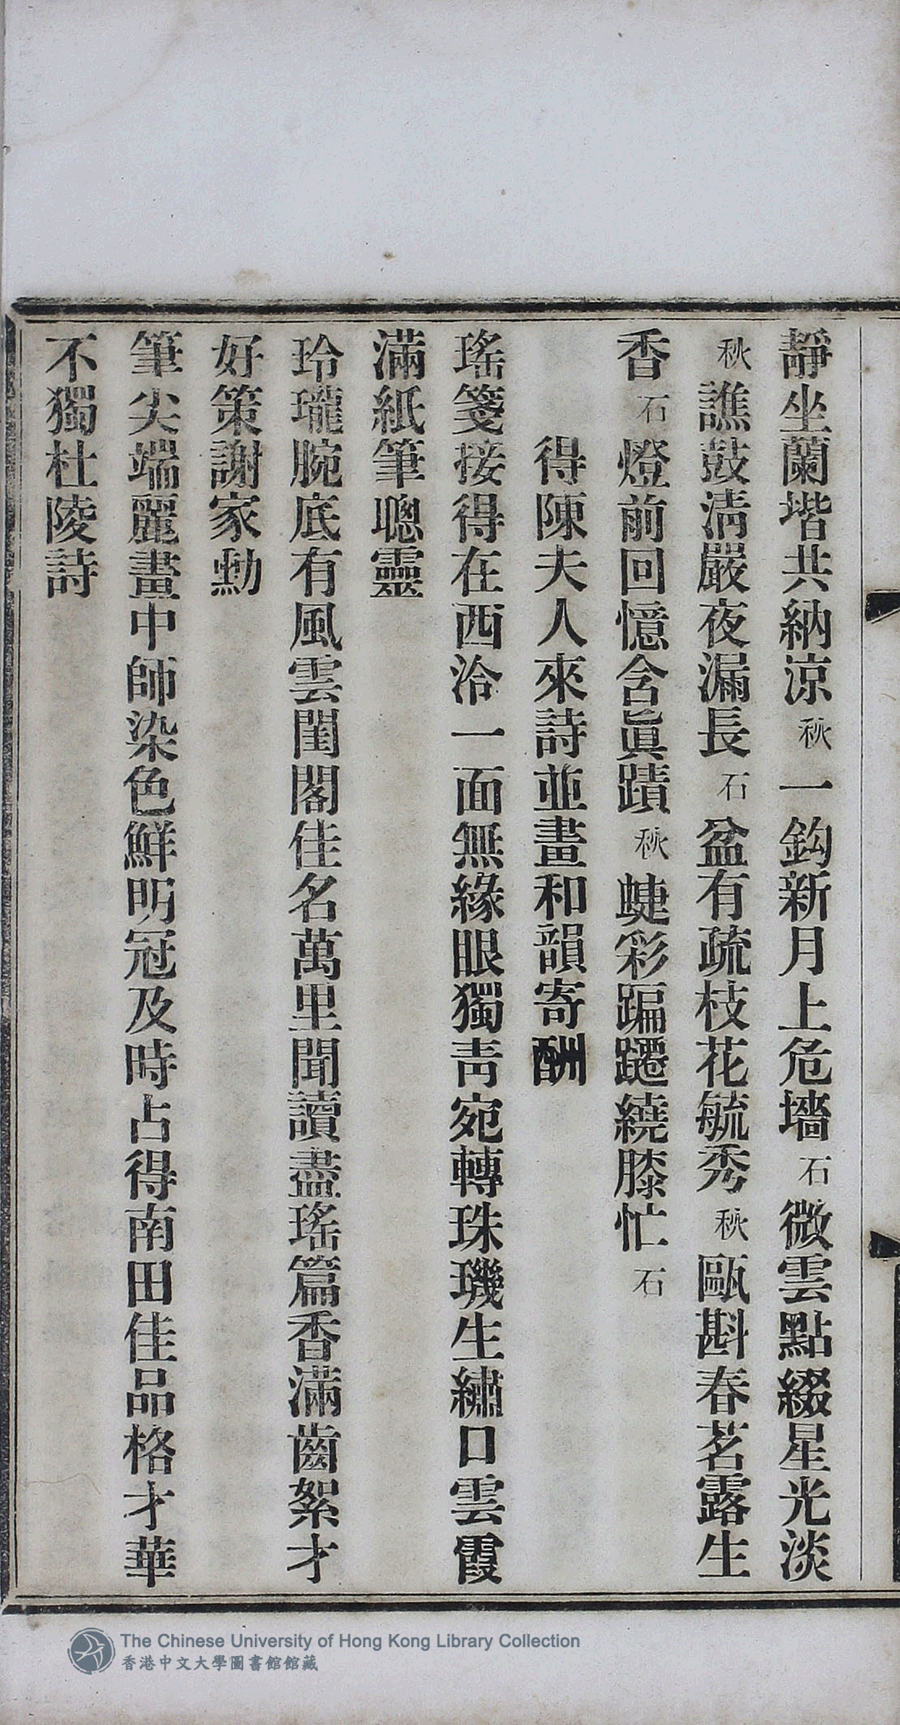 靜坐蘭堦共納涼秋一鈎新月上危墻石微雲點綴星光淡
秋譙鼓淸嚴夜漏長石盆有疏枝花毓秀秋甌斟春茗露生
香石燈前回憶含眞蹟秋蜨彩蹁躚繞膝忙石
得陳夫人來詩並畫和韻寄酬
瑤箋接得在西泠一面無緣眼獨靑宛轉珠璣生繡口雲霞
滿紙筆聰靈
玲瓏腕底有風雲閨閣佳名萬里聞讀盡瑤篇香滿齒絮才
好策謝家勳
筆尖端麗畫中師染色鮮明冠及時占得南田佳品格才華
不獨杜陵詩
The Chinese University of Hong Kong Library Collection
香港中文大學圖書館館藏